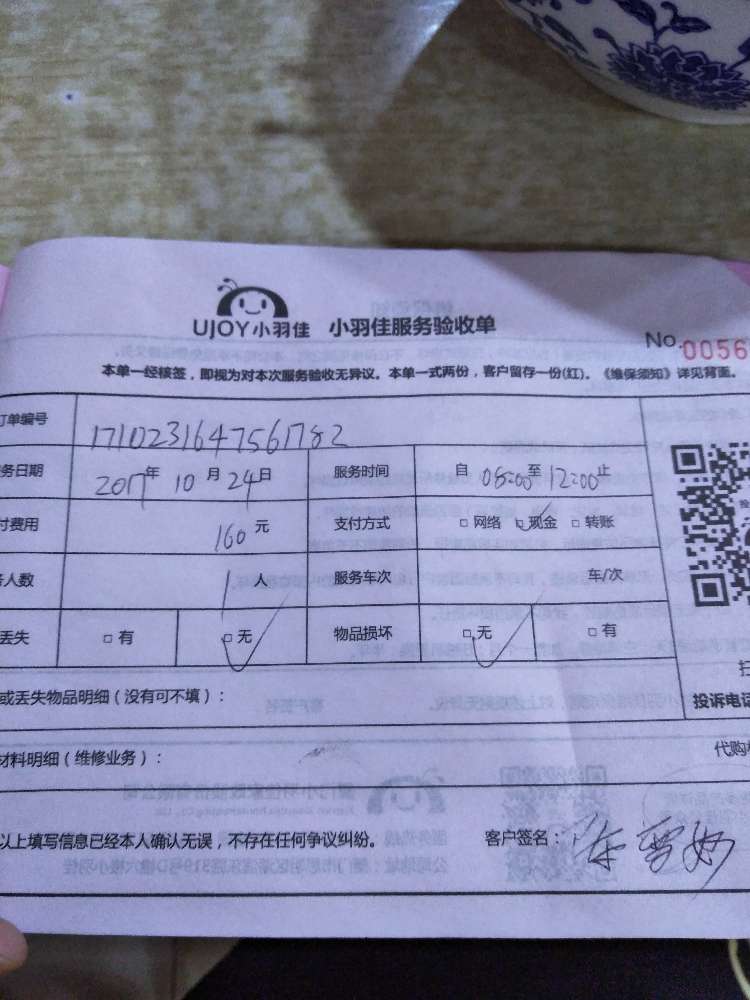 UJOY小羽佳 小羽佳服务验收单
No.0056
本单一经核签，即视为对本次服务验收无异议。本单一式两份，客户留存一份(红)。《维保须知》详见背面。
订单编号 1710231647561782
务日期 2017年 10月 24日 服务时间 自 08:00至12:00止
付费用 160元 支付方式 □ 网络 □ 现金 □ 转账
人数 1人 服务车次 车/次
丢失 □ 有 □ 无 物品损坏 □ 无 □ 有
或丢失物品明细（没有可不填）：
投诉电话
材料明细（维修业务）：
代购
以上填写信息已经本人确认无误，不存在任何争议纠纷。 客户签名：